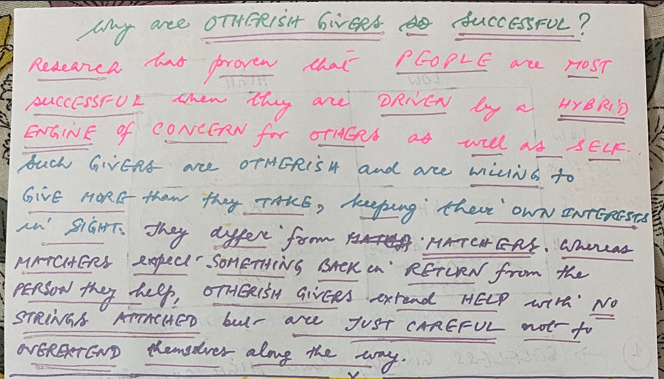 Why are OTHERISH GIVERS so SUCCESSFUL?
Research has proven that PEOPLE are MOST
SUCCESSFUL when they are DRIVEN by a HYBRID
ENGINE of CONCERN for OTHERS as well as SELF.
Such GIVERS are OTHERISH and are WILLING to
GIVE MORE than they TAKE, keeping their OWN INTERESTS
in SIGHT. They differ from MATCHERS. Whereas
MATCHERS expect SOMETHING BACK in RETURN from the
PERSON they help, OTHERISH GIVERS extend HELP with NO
STRINGS ATTACHED but are JUST CAREFUL not to
OVEREXTEND themselves along the way.